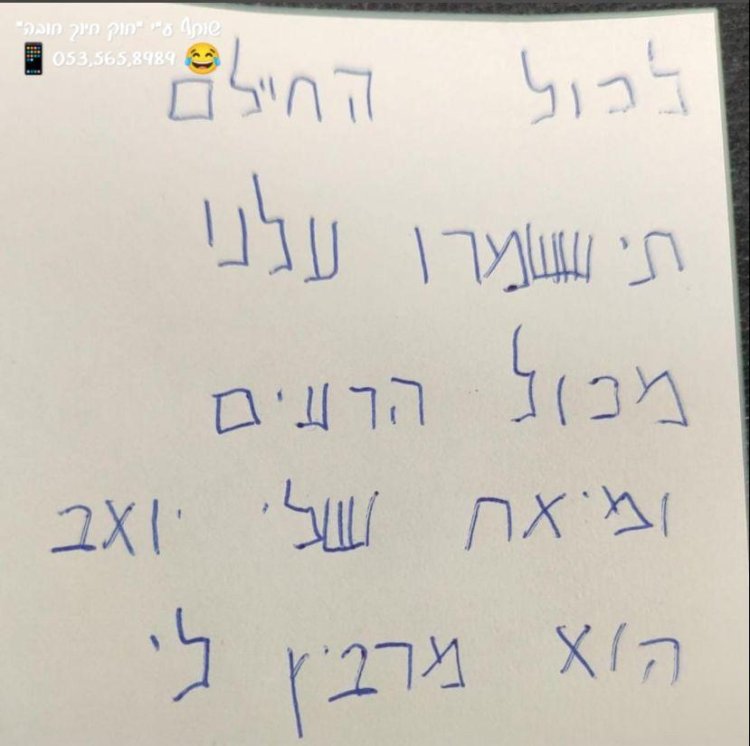 שותף ע״י "חוק חיוך חובה"
📱 053,565,8989 😂
לכול החיילם
תישמרו עלנו
מכול הרעים
ומיאח שלי יואב
הוא מרביץ לי